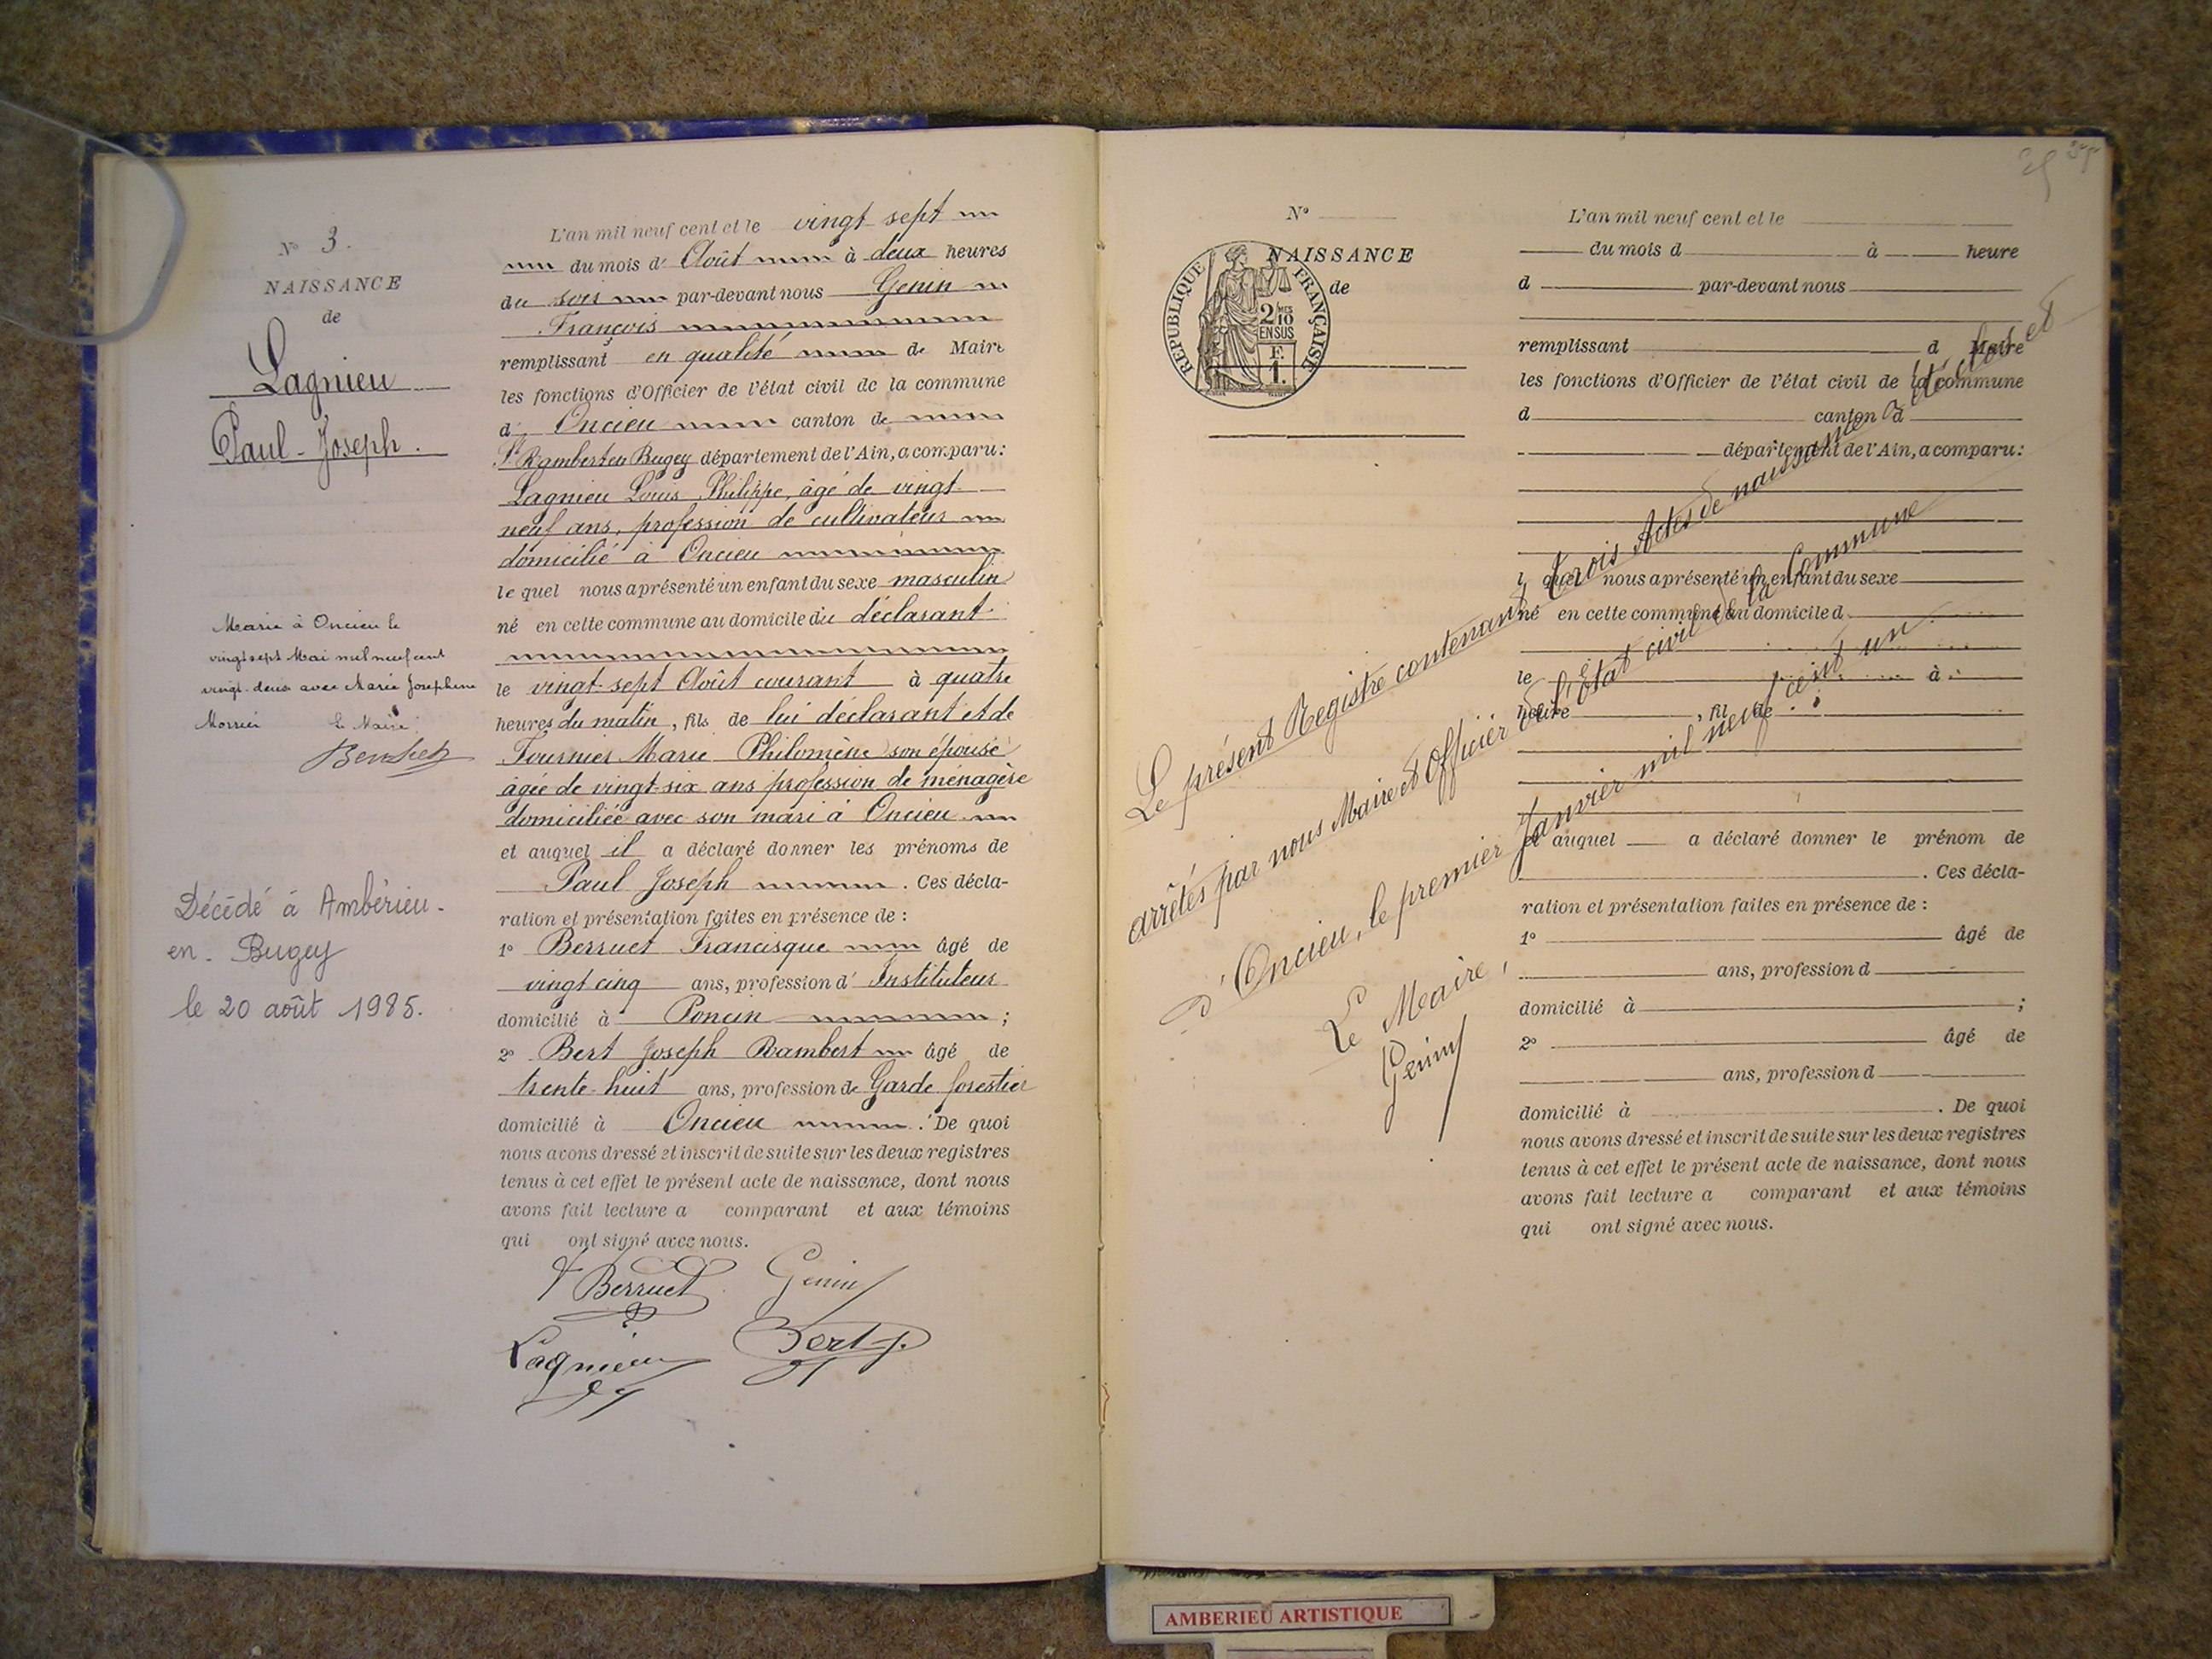 N° 3.
NAISSANCE
de
Lagnieu
Paul-Joseph.
Marié à Oncieu le
vingt sept Mai mil neuf cent
vingt-deux avec Marie Joséphine
Le Maire
Décédé à Ambérieu-
en-Bugey
le 20 août 1985.
L'an mil neuf cent et le vingt sept
du mois d'Août à deux heures
du soir par-devant nous Genin
François
remplissant en qualité de Maire
les fonctions d'Officier de l'état civil de la commune
d'Oncieu canton de
St Rambert en Bugey département de l'Ain, a comparu:
Lagnieu Louis Philippe, âgé de vingt
neuf ans, profession de cultivateur
domicilié à Oncieu
lequel nous a présenté un enfant du sexe masculin
né en cette commune au domicile du déclarant
le vingt-sept Août courant à quatre
heures du matin, fils de lui déclarant et de
Fournier Marie Philomène son épouse
âgée de vingt-six ans profession de ménagère
domiciliée avec son mari à Oncieu
et auquel il a déclaré donner les prénoms de
Paul Joseph. Ces décla-
ration et présentation faites en présence de :
1° Berruet Francisque âgé de
vingt cinq ans, profession d'Instituteur
domicilié à Poncin ;
2° Bert Joseph Rambert âgé de
trente-huit ans, profession de Garde forestier
domicilié à Oncieu. De quoi
nous avons dressé et inscrit de suite sur les deux registres
tenus à cet effet le présent acte de naissance, dont nous
avons fait lecture a comparant et aux témoins
qui ont signé avec nous.
F Berruet Genin
Lagnieu Bert J.
N°
NAISSANCE
de
RÉPUBLIQUE FRANÇAISE
2/10 MES
EN SUS
F.
1.
L'an mil neuf cent et le
du mois d à heure
d par-devant nous
remplissant d Maire
les fonctions d'Officier de l'état civil de la commune
d canton d
département de l'Ain, a comparu:
l quel nous a présenté un enfant du sexe
né en cette commune au domicile d
le à
heure , fil de
et auquel a déclaré donner le prénom de
. Ces décla-
ration et présentation faites en présence de :
1° âgé de
ans, profession d
domicilié à ;
2° âgé de
ans, profession d
domicilié à . De quoi
nous avons dressé et inscrit de suite sur les deux registres
tenus à cet effet le présent acte de naissance, dont nous
avons fait lecture a comparant et aux témoins
qui ont signé avec nous.
Le présent Registre contenant trois Actes de naissance a été clos et
arrêtés par nous Maire et Officier de l'État civil de la Commune
d'Oncieu, le premier Janvier mil neuf cent un
Le Maire,
Genin
AMBERIEU ARTISTIQUE